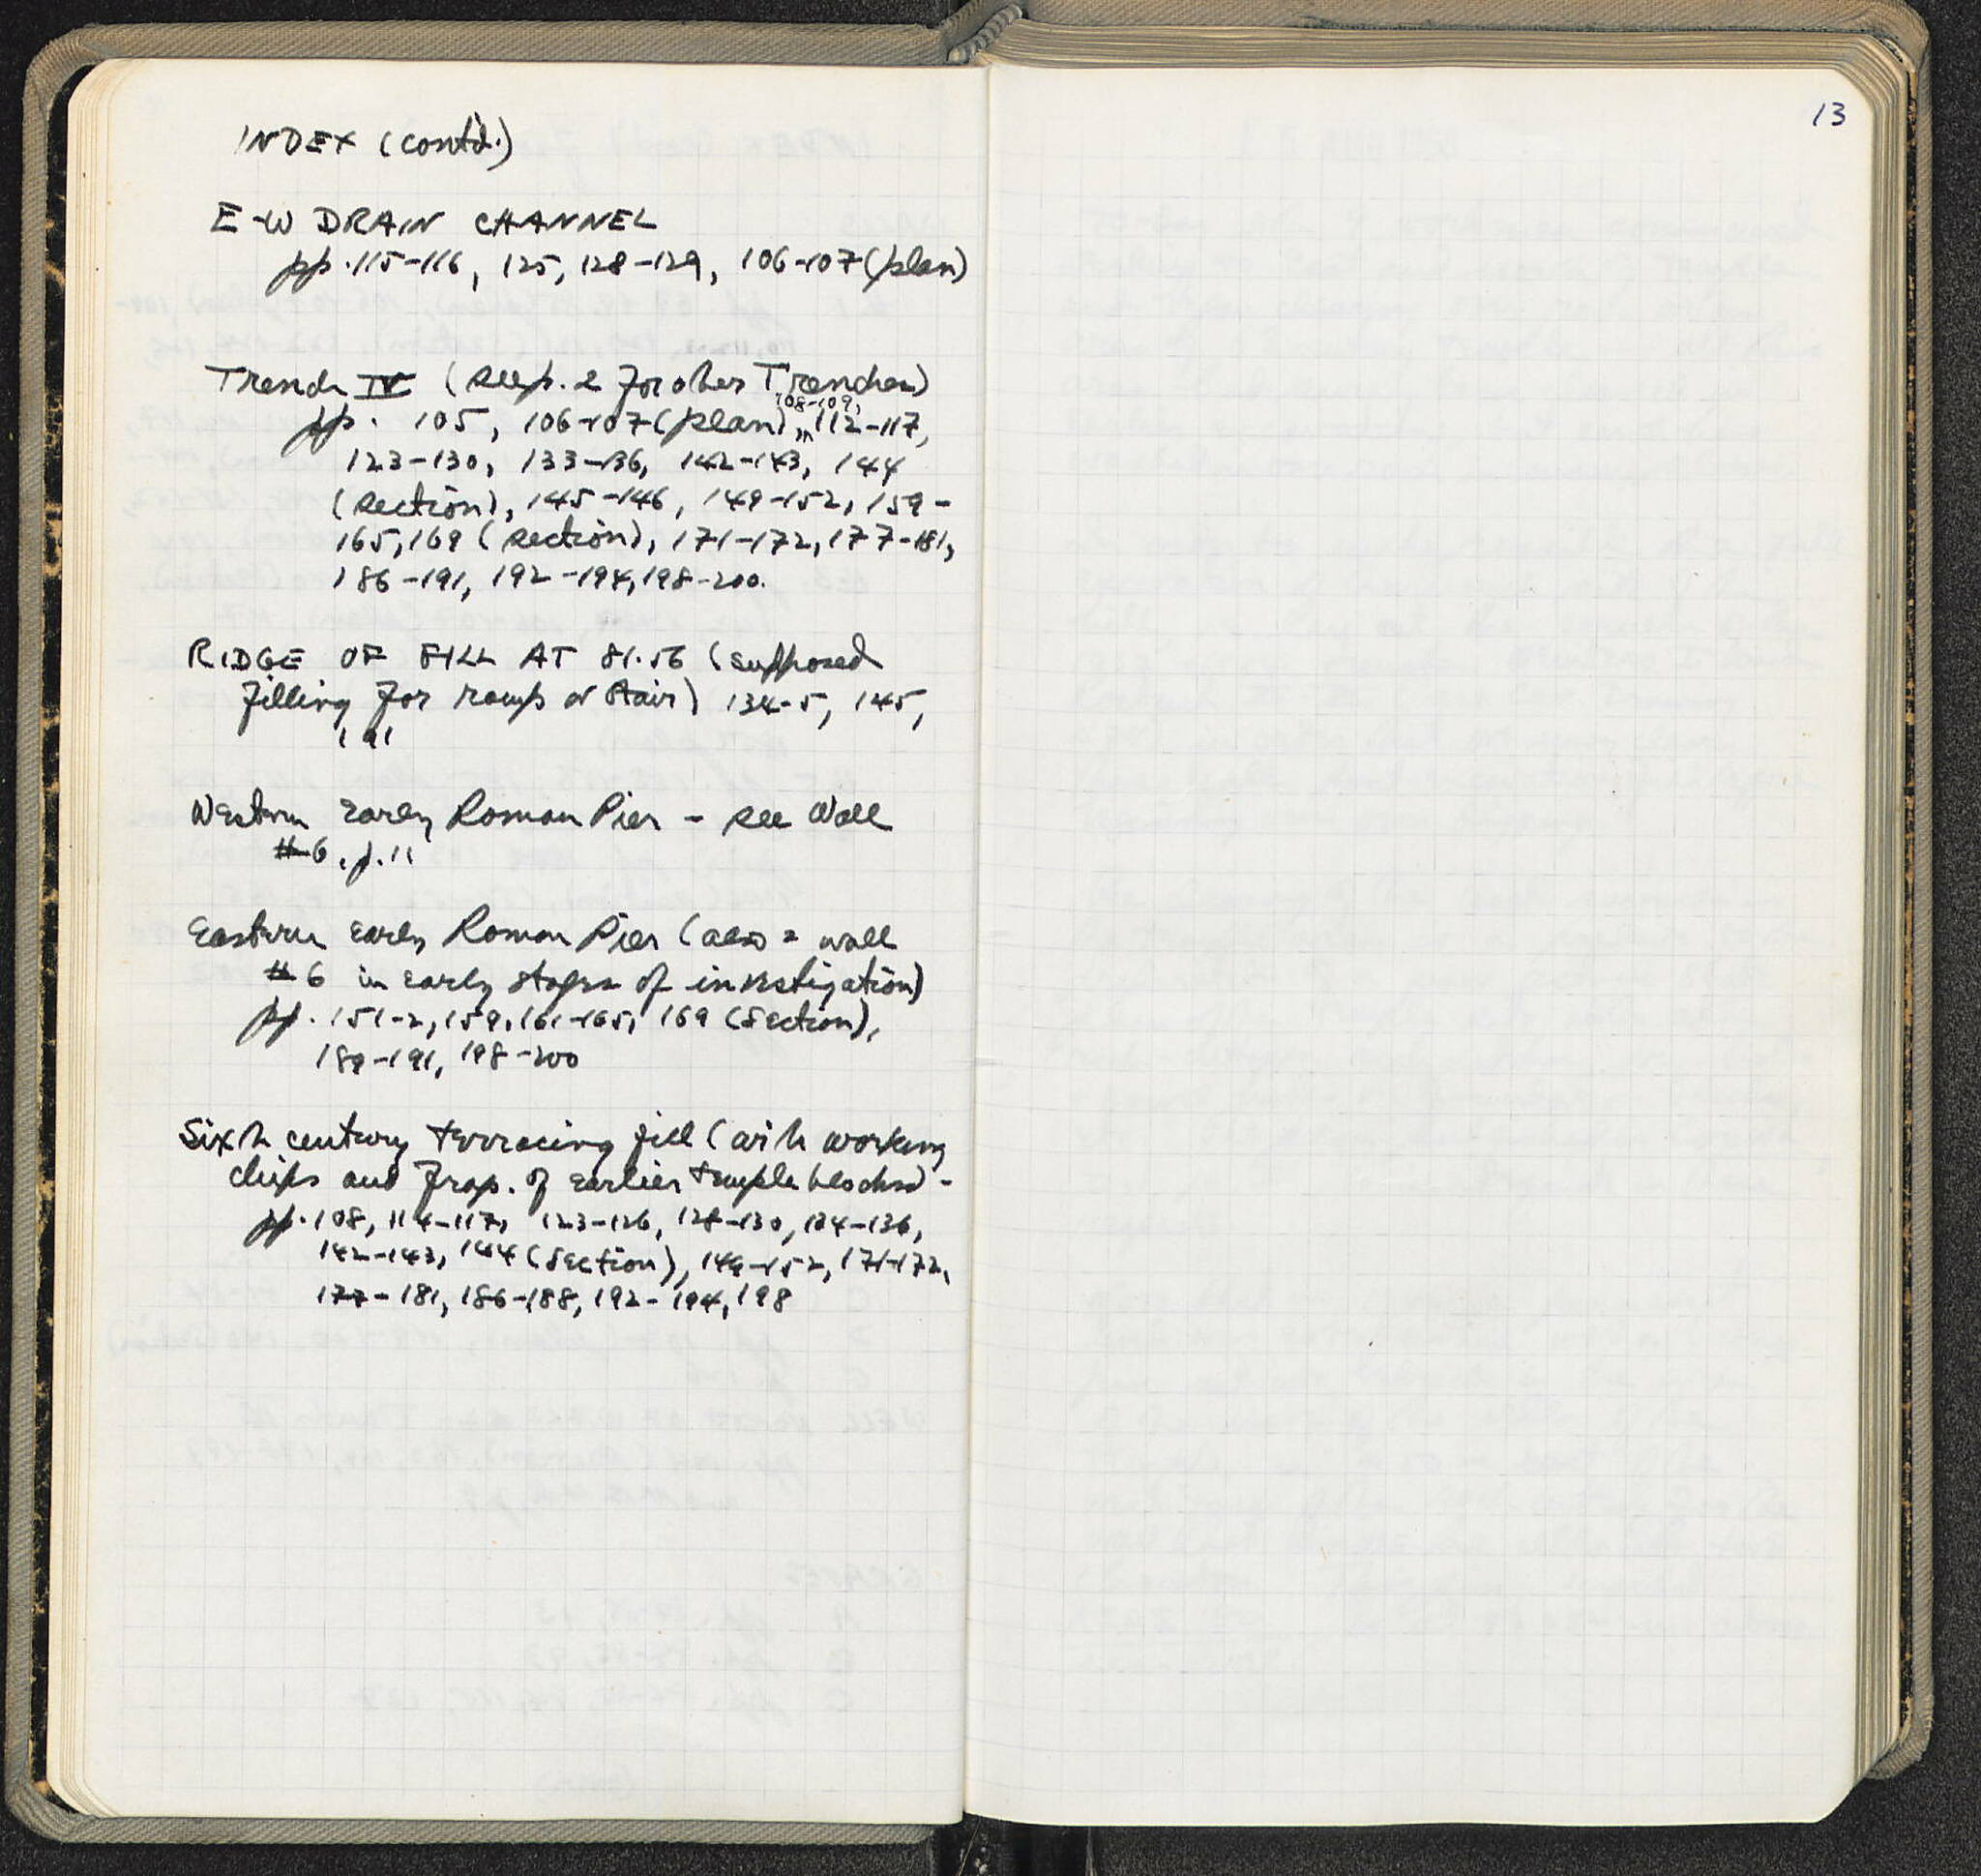 INDEX (contd.)
E-W DRAIN CHANNEL
pp. 115-116, 125, 128-129, 106-107 (plan)
Trench IV (see p. 2 for other Trenches)
108-109,
pp. 105, 106-107 (plan), 112-117,
123-130, 133-136, 142-143, 144
(section), 145-146, 149-152, 159-
165, 169 (section), 171-172, 177-181,
186-191, 192-194, 198-200.
RIDGE OF FILL AT 81.56 (supposed
filling for ramp or stair) 134-5, 145,
191
Western Early Roman Pier - see Wall
#6, p. 11
Eastern Early Roman Pier (also = wall
#6 in early stages of investigation)
pp. 151-2, 159, 161-165, 169 (section),
189-191, 198-200
Sixth century terracing fill (with working
chips and frag. of earlier temple blocks) -
pp. 108, 114-117, 123-126, 128-130, 134-136,
142-143, 144 (section), 149-152, 171-172,
177-181, 186-188, 192-194, 198
13